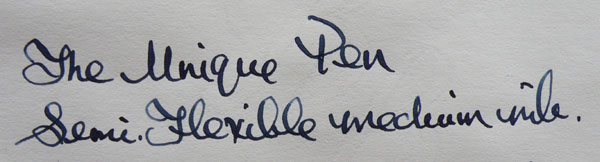 The Unique Pen
Semi. Flexible medium nib.